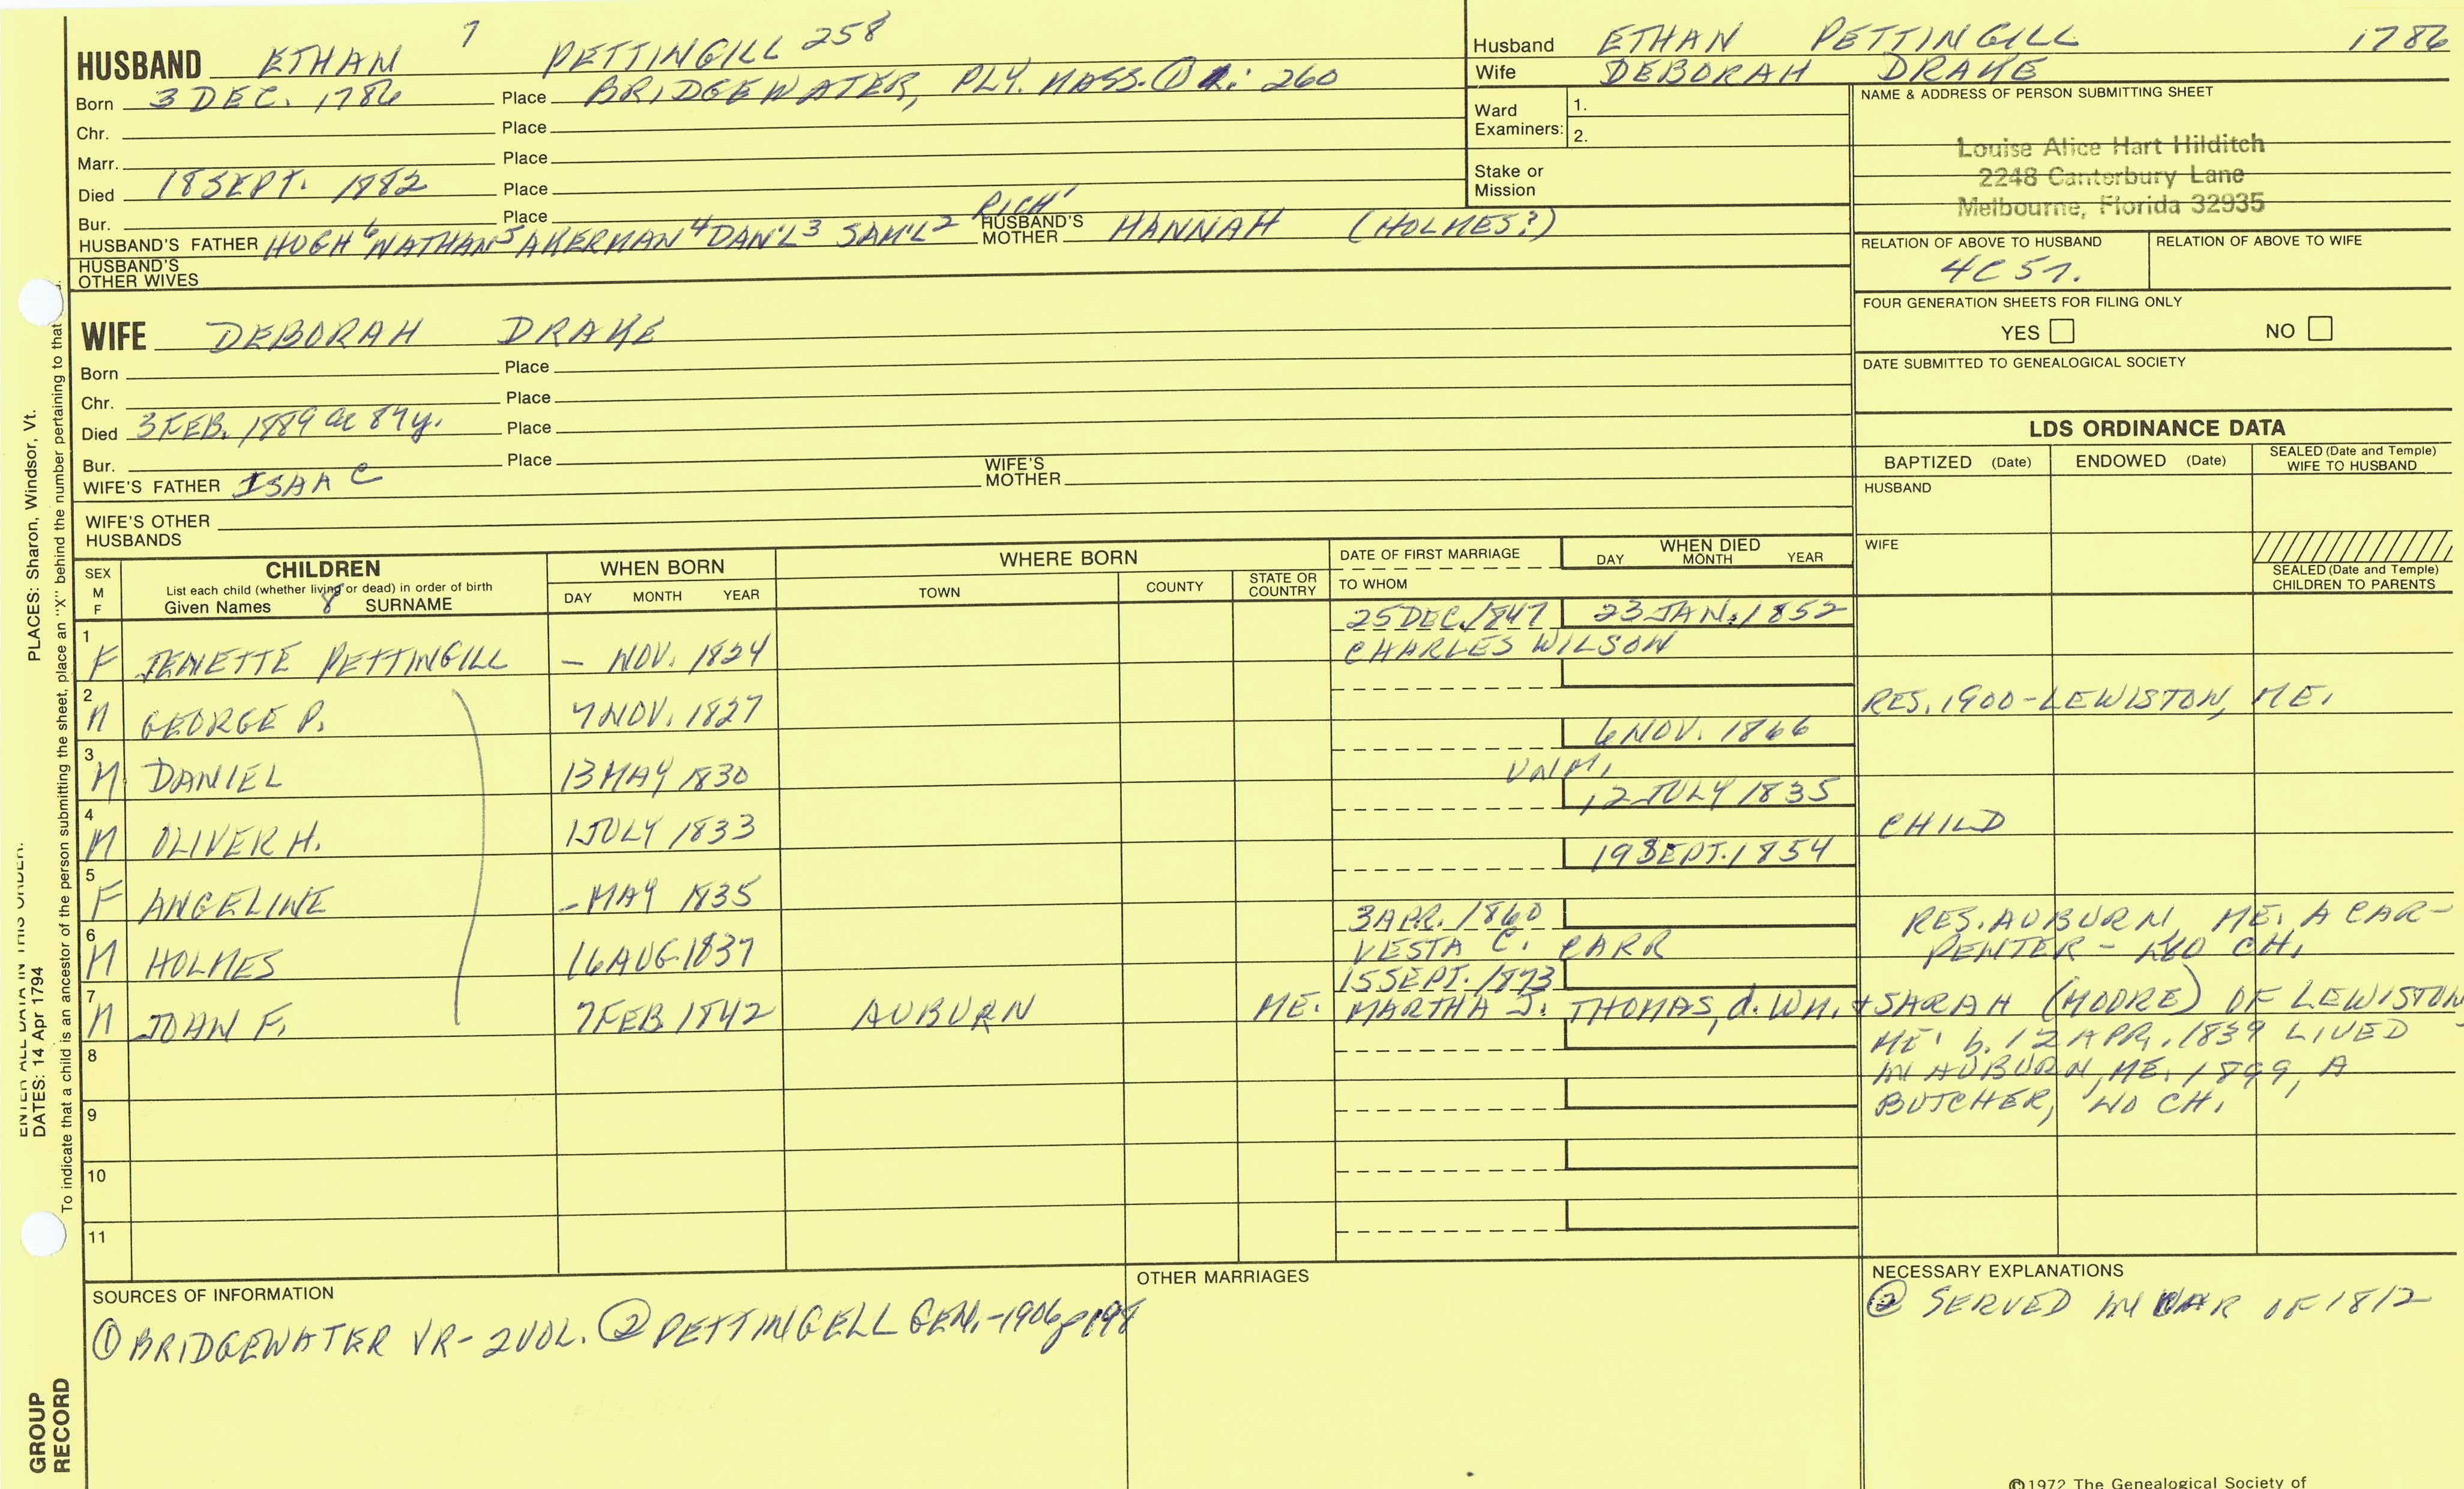 HUSBAND ETHAN 7 PETTINGILL 258
Born 3 DEC. 1786 Place BRIDGEWATER, PLY. MASS. ① 1: 260
Chr. Place
Marr. Place
Died 18 SEPT. 1882 Place
Bur. Place
HUSBAND'S FATHER HUGH 6 NATHAN 5 AKERMAN 4 DAN'L 3 SAM'L 2 RICH' HUSBAND'S MOTHER HANNAH (HOLMES?)
HUSBAND'S OTHER WIVES
Husband ETHAN PETTINGILL 1786
Wife DEBORAH DRAKE
Ward Examiners: 1.
2.
Stake or Mission
NAME & ADDRESS OF PERSON SUBMITTING SHEET
Louise Alice Hart Hilditch
2248 Canterbury Lane
Melbourne, Florida 32935
RELATION OF ABOVE TO HUSBAND RELATION OF ABOVE TO WIFE
4C5
FOUR GENERATION SHEETS FOR FILING ONLY
YES NO
DATE SUBMITTED TO GENEALOGICAL SOCIETY
WIFE DEBORAH DRAKE
Born Place
Chr. Place
Died 3 FEB. 1889 ae 89 y. Place
Bur. Place
WIFE'S FATHER ISAAC WIFE'S MOTHER
WIFE'S OTHER HUSBANDS
LDS ORDINANCE DATA
BAPTIZED (Date) ENDOWED (Date) SEALED (Date and Temple) WIFE TO HUSBAND
HUSBAND
WIFE
SEALED (Date and Temple) CHILDREN TO PARENTS
SEX M F
CHILDREN
List each child (whether living or dead) in order of birth
Given Names 8 SURNAME
WHEN BORN
DAY MONTH YEAR
WHERE BORN
TOWN COUNTY STATE OR COUNTRY
DATE OF FIRST MARRIAGE
TO WHOM
WHEN DIED
DAY MONTH YEAR
25 DEC. 1847 23 JAN. 1852
1 F JENETTE PETTINGILL – NOV. 1824 CHARLES WILSON
2 M GEORGE P. 7 NOV. 1827 RES. 1900 - LEWISTON, ME.
6 NOV. 1866
3 M DANIEL 13 MAY 1830 UNM.
12 JULY 1835
4 M OLIVER H. 1 JULY 1833 CHILD
19 SEPT. 1854
5 F ANGELINE – MAY 1835
3 APR. 1860 RES. AUBURN, ME. A CAR-
6 M HOLMES 16 AUG 1837 VESTA C. CARR PENTER - NO CH.
15 SEPT. 1873
7 M JOHN F. 7 FEB 1842 AUBURN ME. MARTHA J. THOMAS, d. WM. + SARAH (MOORE) OF LEWISTON
ME. b. 12 APR. 1839 LIVED
IN AUBURN, ME. 1899, A
BUTCHER, NO CH.
8
9
10
11
SOURCES OF INFORMATION
① BRIDGEWATER VR - 2 VOL. ② PETTINGELL GEN. - 1906 p 198
OTHER MARRIAGES
NECESSARY EXPLANATIONS
② SERVED IN WAR OF 1812
©1972 The Genealogical Society of
PLACES: Sharon, Windsor, Vt.
ENTER ALL DATA IN THIS ORDER:
DATES: 14 Apr 1794
To indicate that a child is an ancestor of the person submitting the sheet, place an "X" behind the number pertaining to that
GROUP RECORD